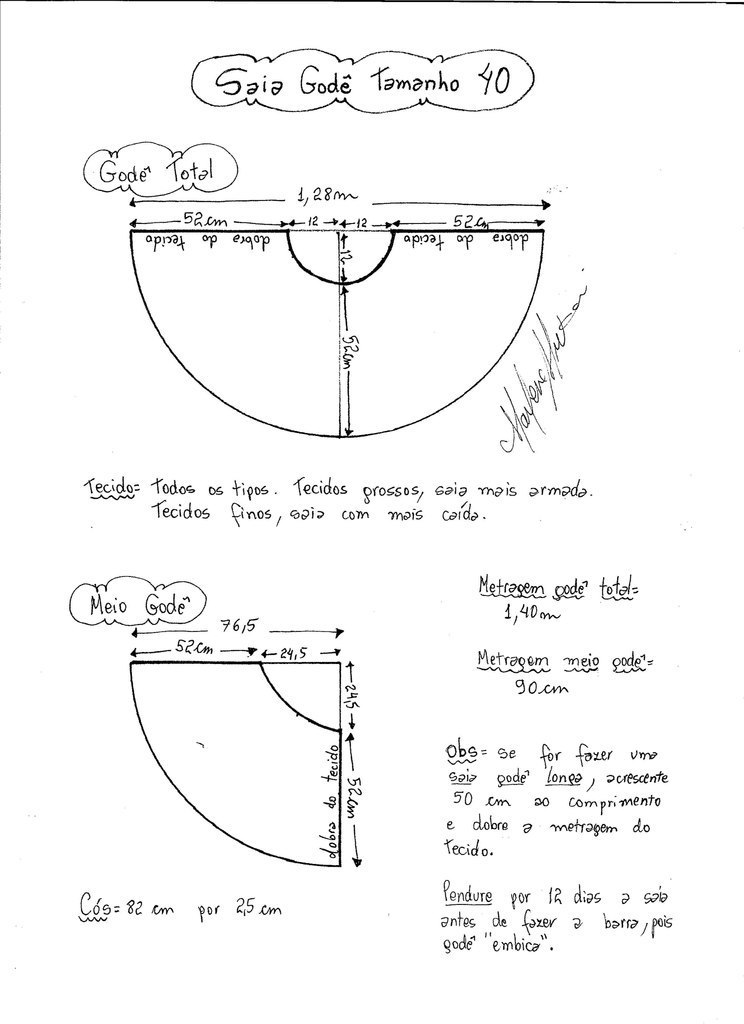 Saia Godê Tamanho 40
Godê Total
1,28m
52cm 12 12 52cm
dobra do tecido dobra do tecido
12
52cm
Tecido= Todos os tipos. Tecidos grossos, saia mais armada.
Tecidos finos, saia com mais caída.
Meio Godê
76,5
52cm 24,5
24,5
dobra do tecido
52cm
Cós= 82 cm por 25 cm
Metragem godê total=
1,40m
Metragem meio godê=
90cm
Obs= se for fazer uma
saia godê longa, acrescente
50 cm ao comprimento
e dobre a metragem do
tecido.
Pendure por 12 dias a saia
antes de fazer a barra, pois
godê "embica".